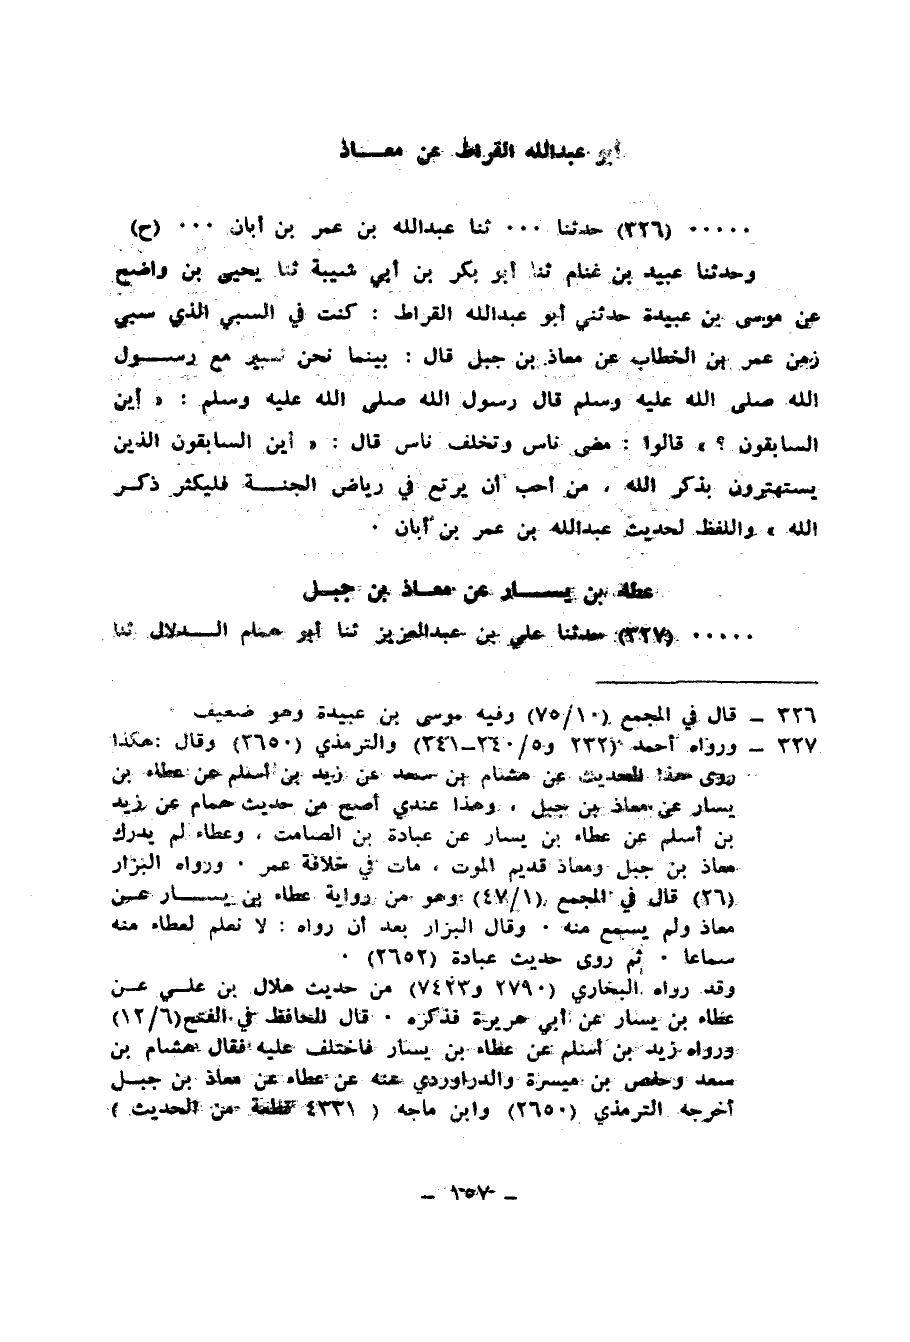 أبو عبدالله القراظ عن معـــاذ
..... (٣٢٦) حدثنا ... ثنا عبدالله بن عمر بن أبان ... (ح)
وحدثنا عبيد بن غنام ثنا أبو بكر بن أبي شيبة ثنا يحيى بن واضح
عن موسى بن عبيدة حدثني أبو عبدالله القراظ : كنت في السبي الذي سبي
زمن عمر بن الخطاب عن معاذ بن جبل قال : بينما نحن نسير مع رســـول
الله صلى الله عليه وسلم قال رسول الله صلى الله عليه وسلم : « أين
السابقون ؟ » قالوا : مضى ناس وتخلف ناس قال : « أين السابقون الذين
يستهترون بذكر الله ، من أحب أن يرتع في رياض الجنـــة فليكثر ذكـر
الله » واللفظ لحديث عبدالله بن عمر بن أبان .
عطاء بن يســـار عن معـاذ بن جبـل
..... (٣٢٧) حدثنا علي بن عبدالعزيز ثنا أبو همام الـــدلال ثنا
٣٢٦ ــ قال في المجمع (٧٥/١٠) وفيه موسى بن عبيدة وهو ضعيف .
٣٢٧ ــ ورواه أحمد (٢٣٢ و٢٤٠/٥ــ٢٤١) والترمذي (٢٦٥٠) وقال : هكذا
روى هذا الحديث عن هشام بن سعد عن زيد بن أسلم عن عطاء بن
يسار عن معاذ بن جبل ، وهذا عندي أصح من حديث همام عن زيد
بن أسلم عن عطاء بن يسار عن عبادة بن الصامت ، وعطاء لم يدرك
معاذ بن جبل ومعاذ قديم الموت ، مات في خلافة عمر . ورواه البزار
(٢٦) قال في المجمع (٤٧/١) وهو من رواية عطاء بن يســـار عـن
معاذ ولم يسمع منه . وقال البزار بعد أن رواه : لا نعلم لعطاء منه
سماعا . ثم روى حديث عبادة (٢٦٥٢) .
وقد رواه البخاري (٢٧٩٠ و٧٤٢٣) من حديث هلال بن علـي عـن
عطاء بن يسار عن أبي هريرة فذكره . قال الحافظ في الفتح (١٢/٦)
ورواه زيد بن أسلم عن عطاء بن يسار فاختلف عليه فقال هشام بن
سعد وحفص بن ميسرة والدراوردي عنه عن عطاء عن معاذ بن جبـل
أخرجه الترمذي (٢٦٥٠) وابن ماجه ( ٤٣٣١ قطعة من الحديث )
ــ ١٥٧ ــ